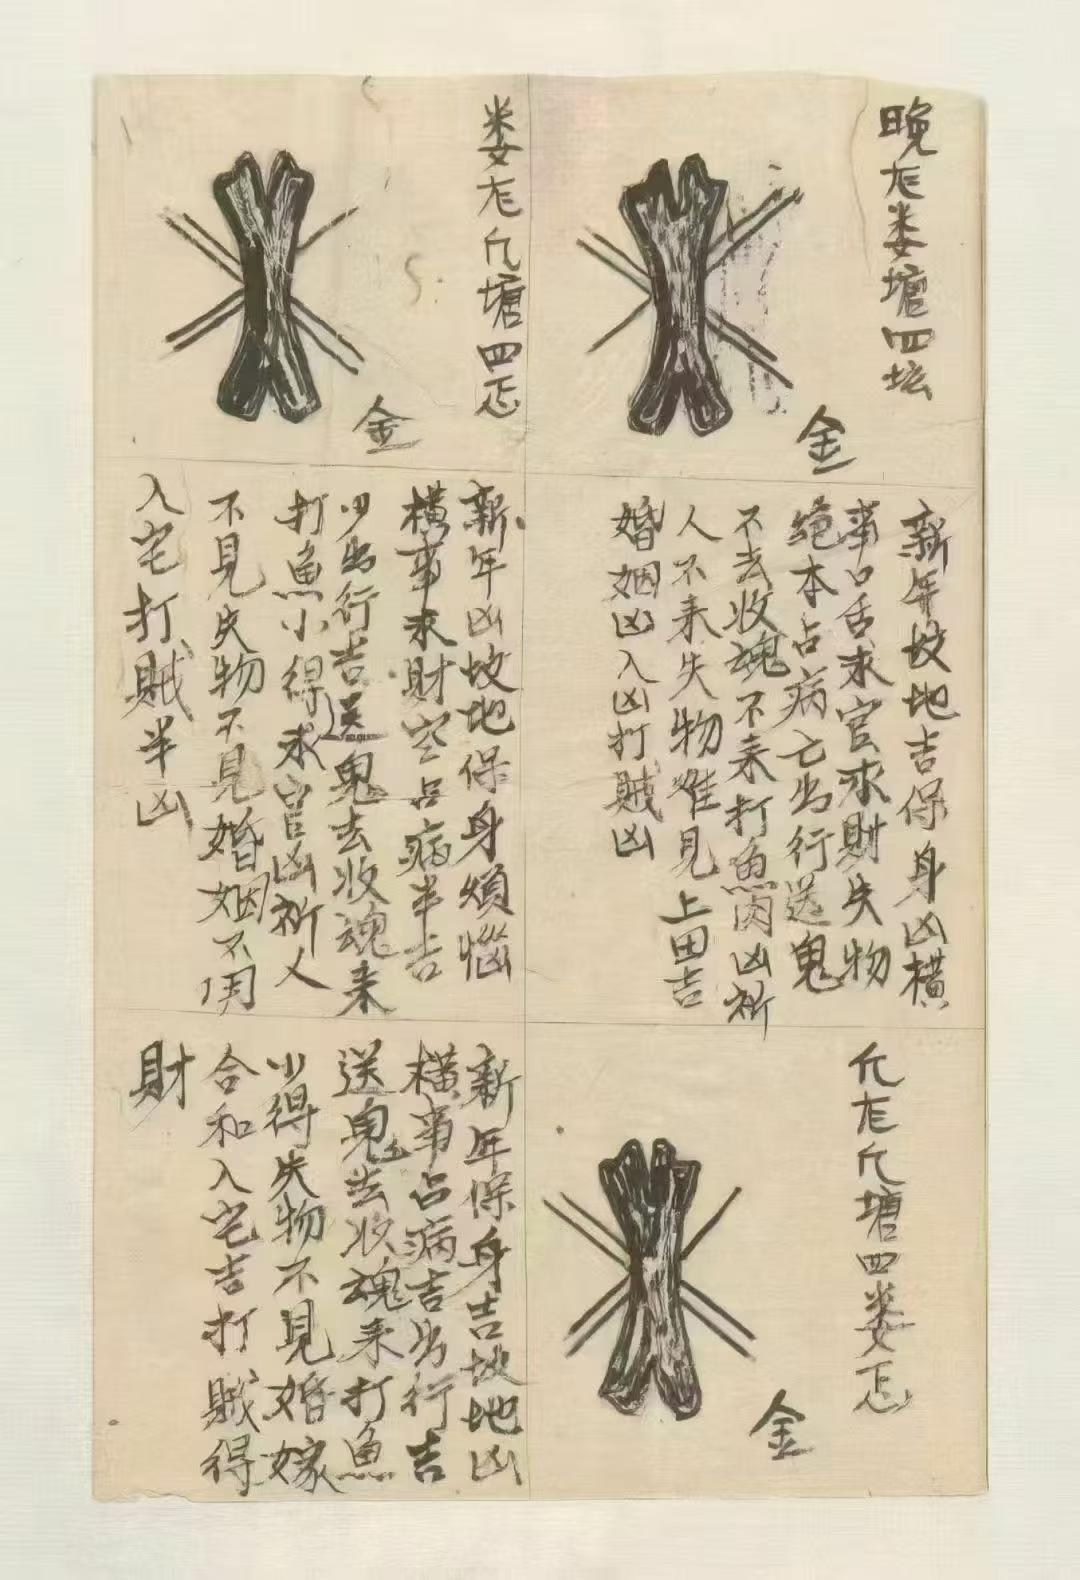 晚㔫娄塘四坛
金
新年坡地吉保身凶橫
事口舌求官求財失物
绝本占病亡出行送鬼
不去收魂不来打魚肉凶祈
人不来失物难見上田吉
婚姻凶入凶打贼凶
仡㔫仡塘四娄
金
娄㔫仡塘四
金
新年凶坡地保身煩惱
橫事求財空占病半吉
少出行吉送鬼去收魂来
打魚小得求官凶祈人
不見失物不見婚姻不用
入宅打贼半凶
新年保身吉坡地凶
橫事占病吉出行吉
送鬼去收魂来打魚
少得失物不見婚嫁
合和入宅吉打贼得
財